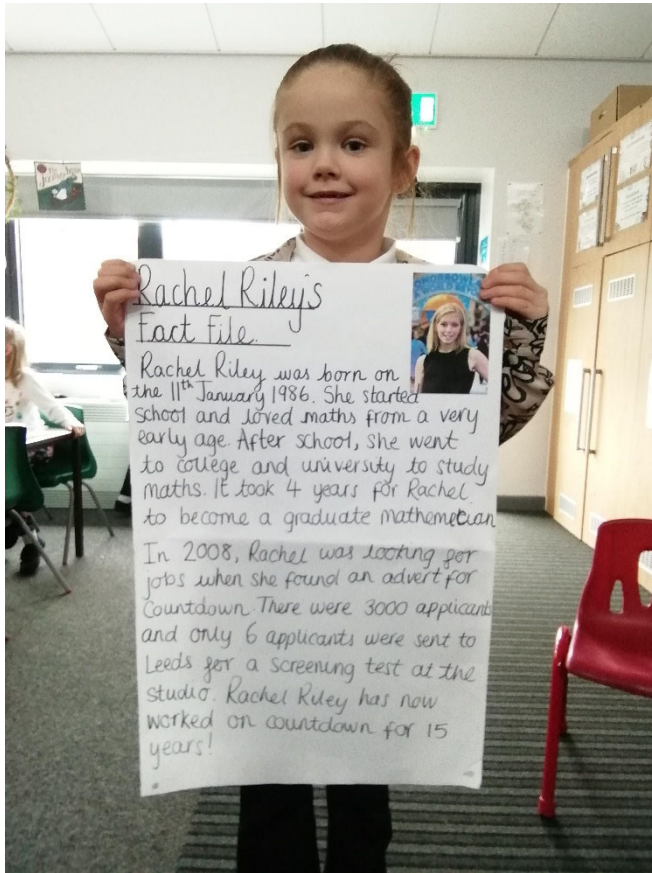 Rachel Riley's
Fact File.
Rachel Riley was born on
the 11th January 1986. She started
school and loved maths from a very
early age. After school, she went
to college and university to study
maths. It took 4 years for Rachel
to become a graduate mathemetian
In 2008, Rachel was looking for
jobs when she found an advert for
Countdown. There were 3000 applicants
and only 6 applicants were sent to
Leeds for a screening test at the
studio. Rachel Riley has now
worked on countdown for 15
years!